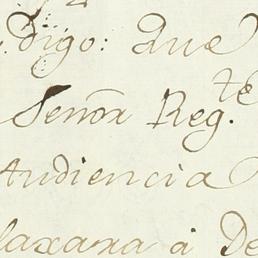 digo: Que
Señor Reg.te
Audiencia
laxara à De